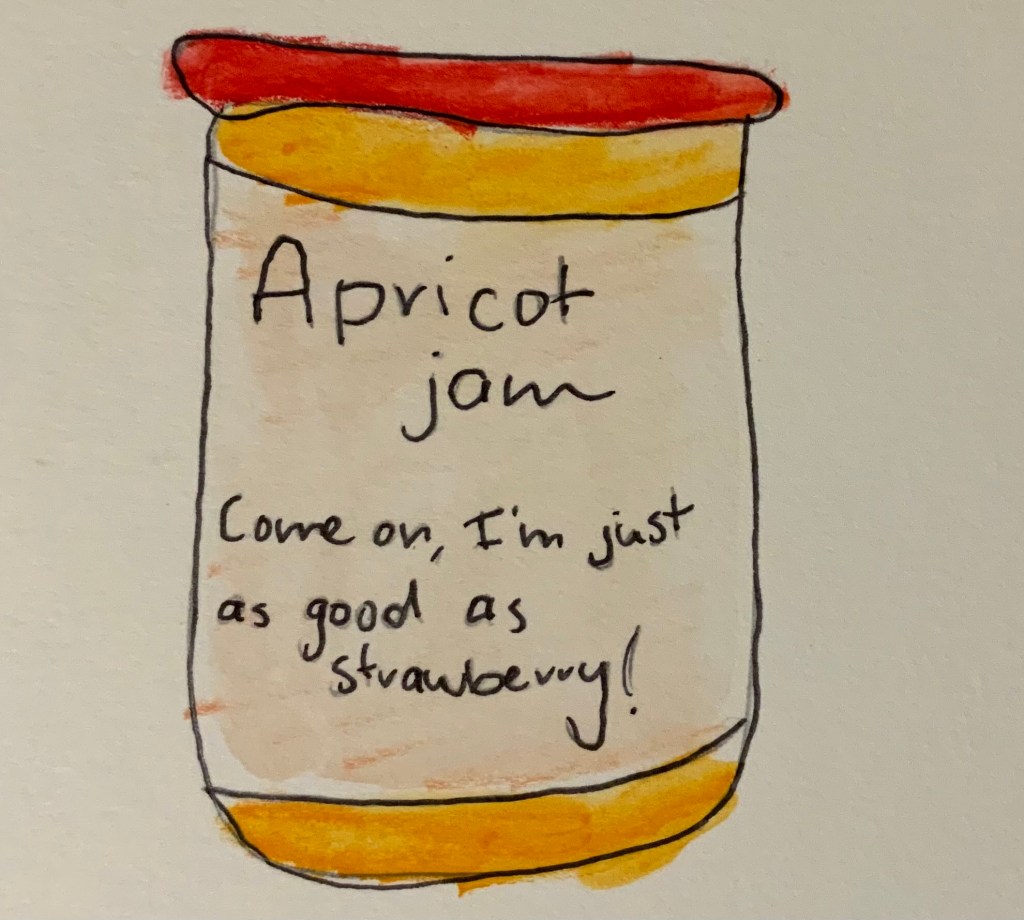 Apricot
jam
Come on, I'm just
as good as
strawberry!